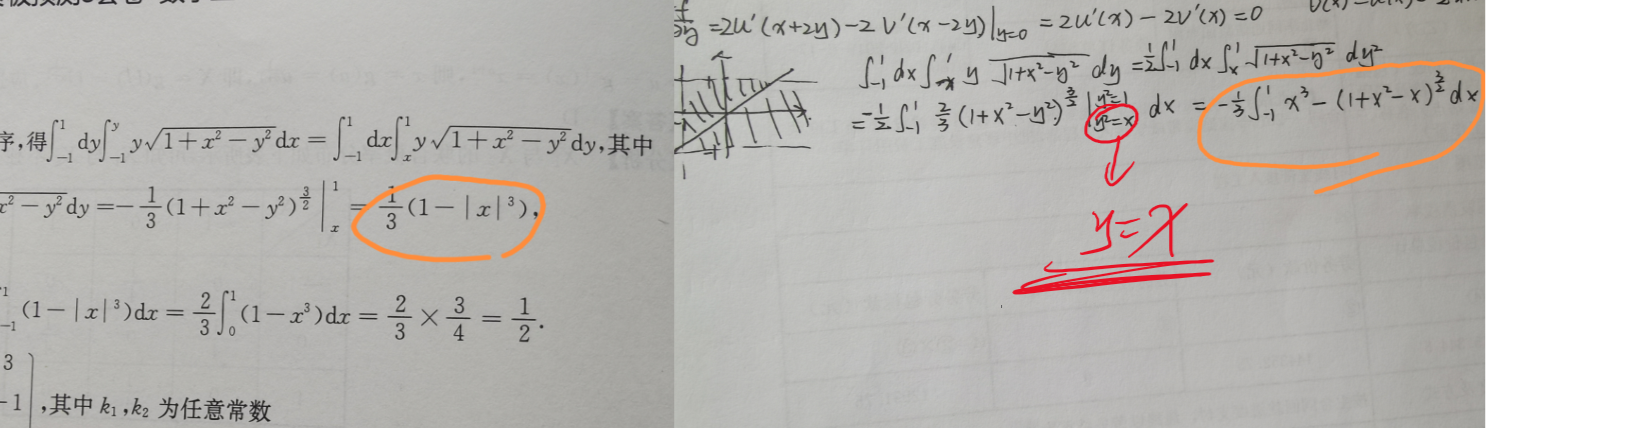 序,得∫_{-1}^{1}dy∫_{-1}^{y}y√(1+x²-y²)dx=∫_{-1}^{1}dx∫_{x}^{1}y√(1+x²-y²)dy,其中
x²-y²dy=-1/3(1+x²-y²)^{3/2}|_{x}^{1}=1/3(1-|x|³),
_{-1}^{1}(1-|x|³)dx=2/3∫_{0}^{1}(1-x³)dx=2/3×3/4=1/2.
3
-1],其中k₁,k₂为任意常数
=2u'(x+2y)-2v'(x-2y)|_{y=0}=2u'(x)-2v'(x)=0
∫_{-1}^{1}dx∫_{x}^{1}y√(1+x²-y²)dy=1/2∫_{-1}^{1}dx∫_{x}^{1}√(1+x²-y²)dy²
=-1/2∫_{-1}^{1}2/3(1+x²-y²)^{3/2}|_{y²=x}^{y²=1}dx=-1/3∫_{-1}^{1}x³-(1+x²-x)^{3/2}dx
y=x